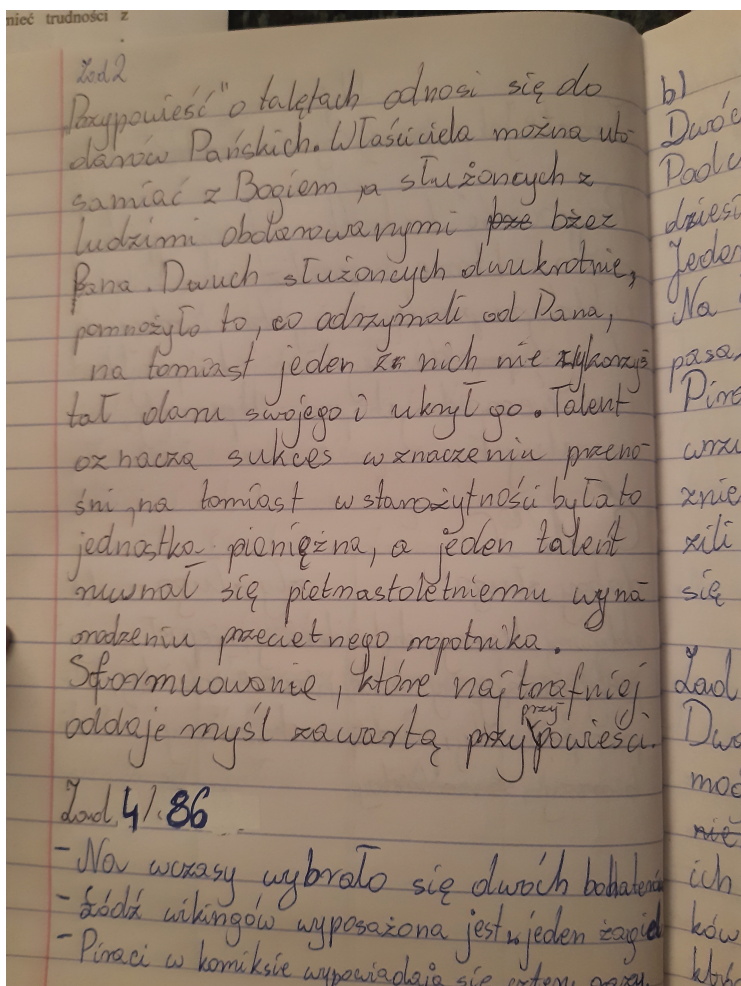 nieć trudności z
Zad 2
„Przypowieść" o talętach odnosi się do
darów Pańskich. Właściciela można uto-
samiać z Bogiem, a służoncych z
ludzimi obdarowanymi bżez
Pana. Dwuch służoncych dwukrotnie,
pomnożyło to, co odrzymali od Pana,
na tomiast jeden z nich nie wykorzys-
tał daru swojego i ukrył go. Talent
oznacza sukces w znaczeniu przeno-
śni, na tomiast w starożytności była to
jednostka pieniężna, a jeden talent
ruwnał się pietnastoletniemu wyna-
grodzeniu przecietnego ropotnika.
Sformuowanie, które naj trafniej
oddaje myśl zawartą przy przypowieści.
Zad 4/.86
- Na wczasy wybrało się dwóch bohaterów
- Łódź wikingów wyposażona jest w jeden żagiel
- Piraci w komiksie wypowiadają się cztery razy.
b)
Dwóc
dziesi
Jeden
Na
pasa
wrzu
znie
zili
się
Zad
moć
nie
ich
ków